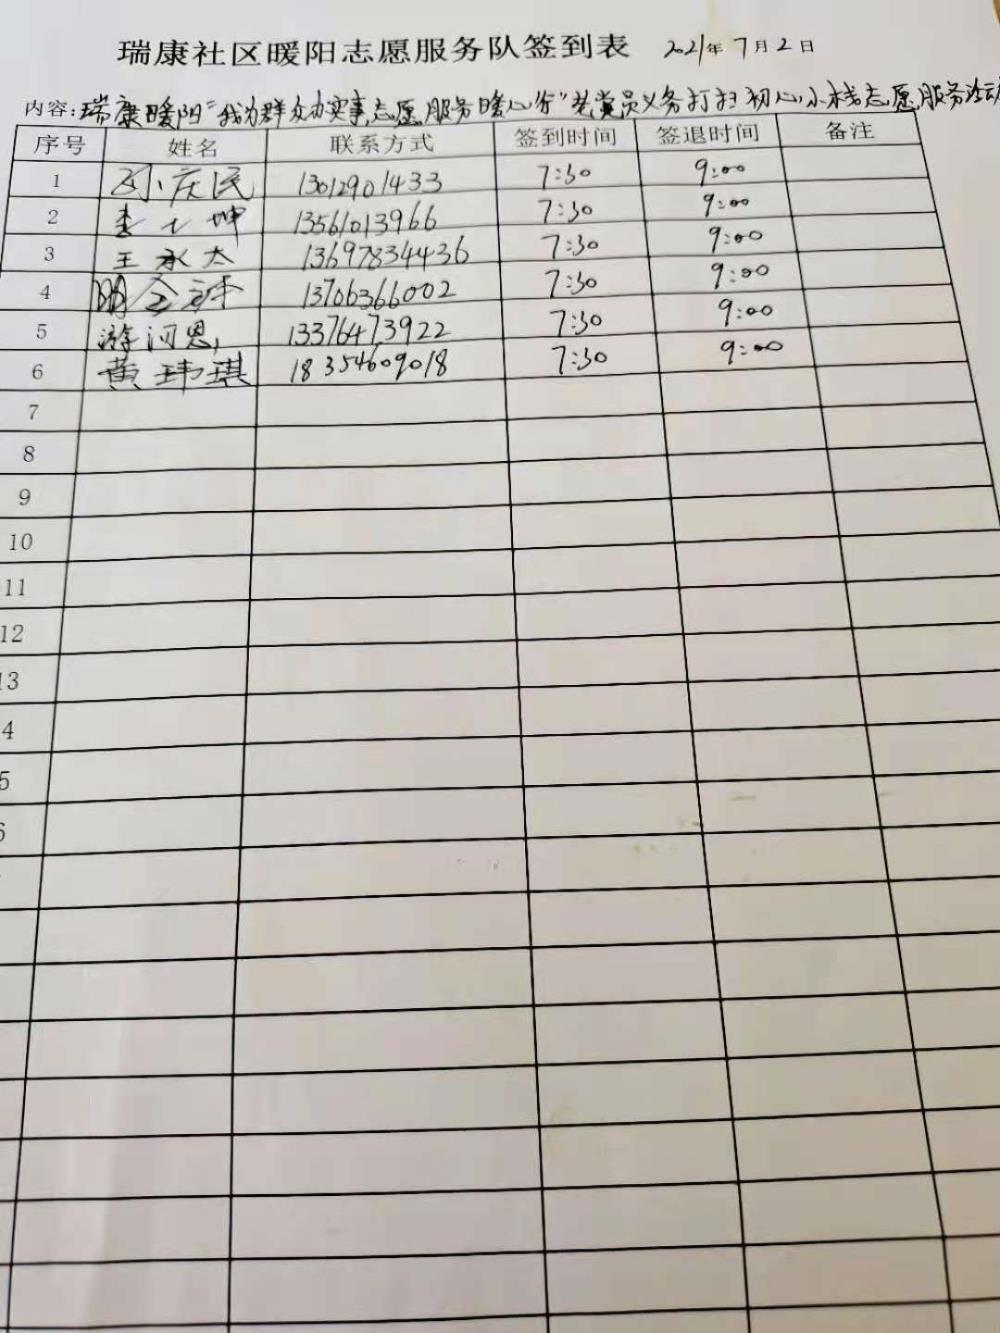 瑞康社区暖阳志愿服务队签到表 2021年7月2日
内容:瑞康暖阳"我为群众办实事,志愿服务暖心行"老党员义务打扫初心小栈志愿服务活动
序号 姓名 联系方式 签到时间 签退时间 备注
1 孙庆民 13012901433 7:30 9:00
2 李 坤 13561013966 7:30 9:00
3 王永太 13697834436 7:30 9:00
4 13706366002 7:30 9:00
5 游河恩 13376473922 7:30 9:00
6 黄玮琪 18354609018 7:30 9:00
7
8
9
10
11
12
13
4
5
6